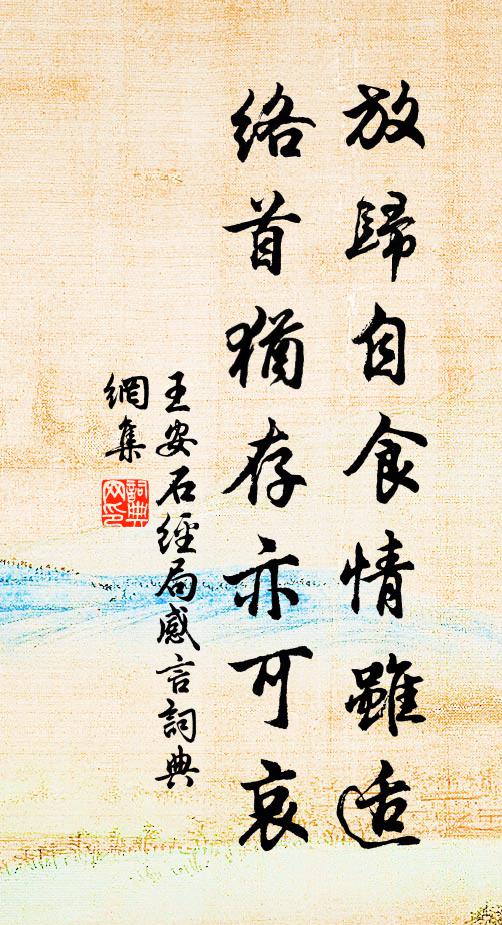 放歸自食情雖适
絡首猶存亦可哀
王安石經局感言詞典
網集
詞典
网印